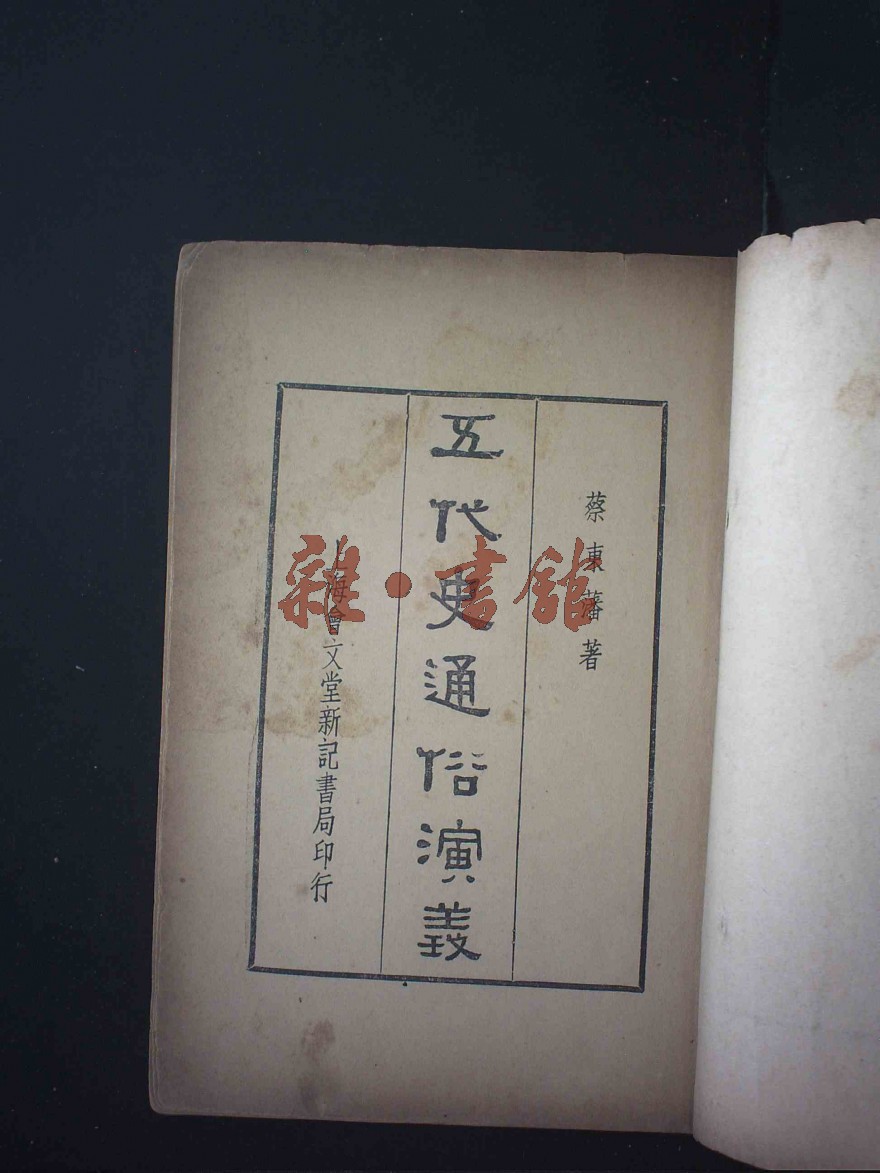 蔡東藩著
五代史通俗演義
上海會文堂新記書局印行
雜·書館